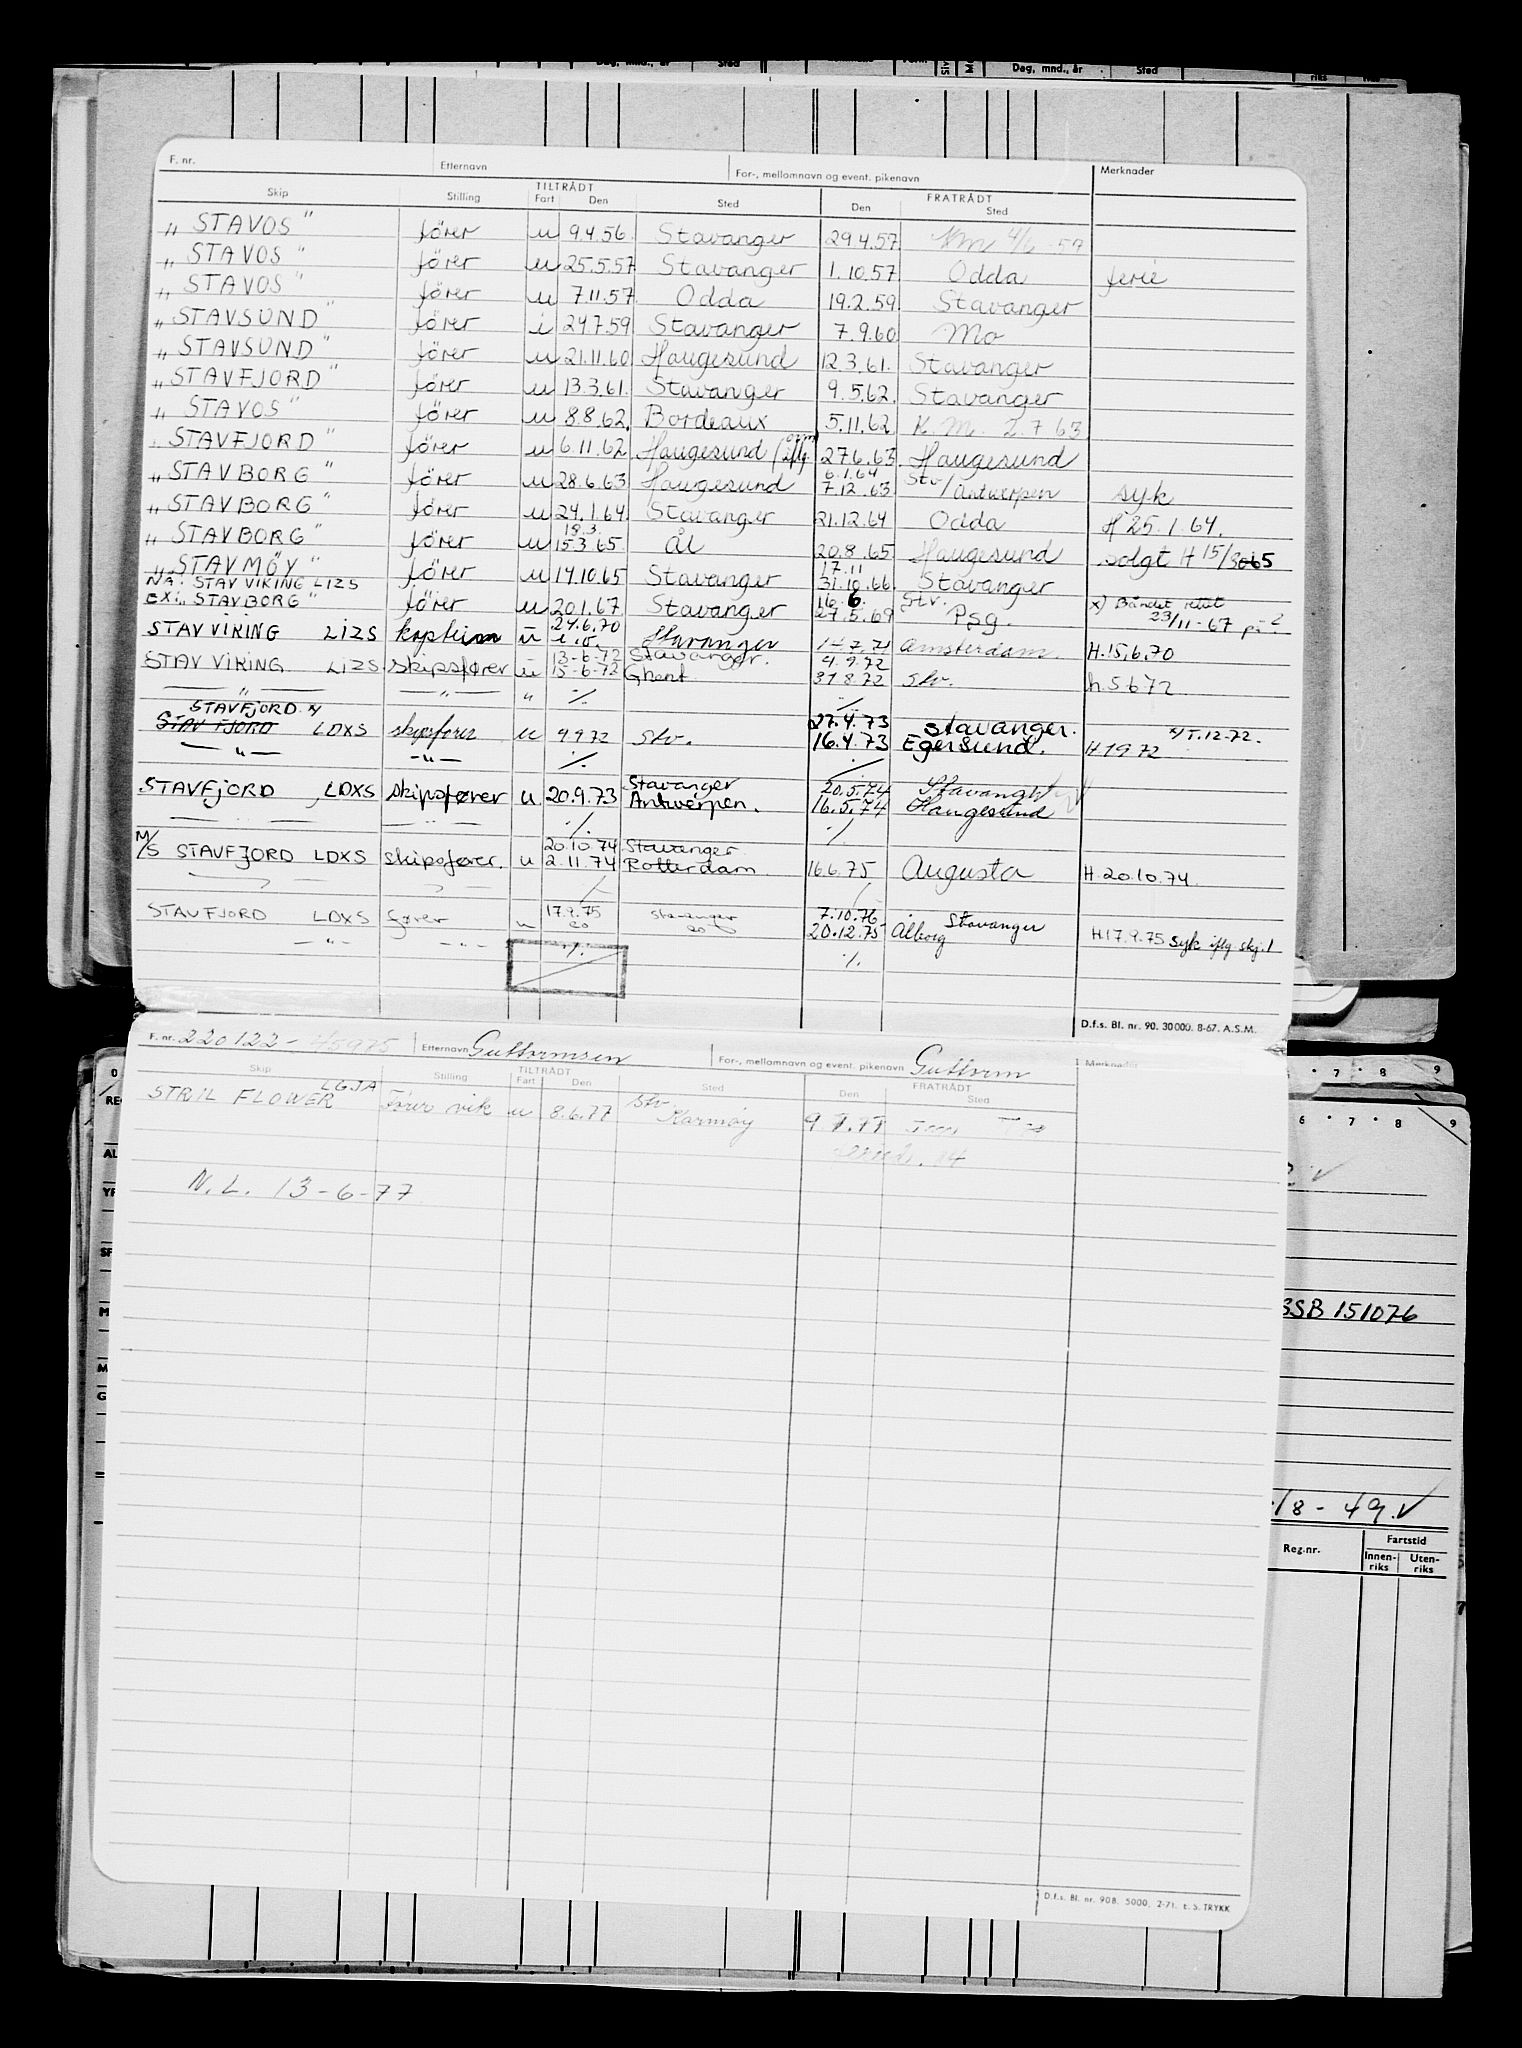 F. nr. Etternavn For-, mellomnavn og event. pikenavn Merknader
Skip Stilling TILTRÅDT Fart Den Sted FRATRÅDT Den Sted
„ STAVOS " förer u 9.4.56. Stavanger 29.4.57. 4/6-57
„ STAVOS " förer u 25.5.57 Stavanger 1.10.57 Odda ferie
„ STAVOS " förer u 7.11.57 Odda 19.2.59 Stavanger
„ STAVSUND " förer i 24.7.59 Stavanger 7.9.60 Mo
„ STAVSUND " förer u 21.11.60 Haugesund 12.3.61. Stavanger
„ STAVFJORD " förer u 13.3.61. Stavanger 9.5.62. Stavanger
„ STAVOS " förer u 8.8.62. Bordeaux 5.11.62 K.M. 2.7 63
STAVFJORD " förer u 6.11.62 Haugesund 27.6.63 Haugesund
„ STAVBORG " förer u 28.6.63 Haugesund 6.1.64 7.12.63 Stv/Antwerpen syk
„ STAVBORG " förer u 24.1.64. Stavanger 21.12.64 Odda H 25.1.64.
„ STAVBORG " förer u 18.3. 15.3.65. Ål 20.8.65 Haugesund solgt H 15/3-65
„ STAVMÖY " förer u 14.10.65 Stavanger 17.11 31.10.66 Stavanger
NÅ: STAV VIKING LIZS
EX: „ STAVBORG " förer u 20.1.67. Stavanger 16.6. 27.5.69 Stv. Psg. x) Båndet 23/11-67 på?
STAV VIKING LIZS kaptein u 24.6.70 Stavanger 14.7.71 Amsterdam. H.15.6.70
STAV VIKING LIZS skipsfører u 13-6-72 Stavanger. 4.9.72
15-6-72 Ghent 31 8 72 Stv. h.5 6 72
— " — — " — " ./. ./.
STAVFJORD x) 27.4.73 Stavanger.
STAV FJORD LDXS skipsfører u 9 9 72 Stv. 16.4.73 Egersund. H 1 9 72 x) T.12-72.
— " — — " — ./. ./.
STAVFJORD LDXS skipsfører u 20.9.73 Stavanger Antwerpen. 20.5.74 Stavanger
16.5.74 Haugesund
./. ./.
M/S STAVFJORD LDXS skipsfører. u 20.10.74 Stavanger
2.11.74 Rotterdam 16.6.75 Augusta H.20.10.74.
STAVFJORD LDXS fører u 17.9.75 Stavanger 7.10.76. Stavanger
20.12.75 Ålborg H.17.9.75 Syk iflg skj.1
— " — — " — ./. ./.
D.f.s. Bl. nr. 90. 30000. 8-67. A.S.M.
F. nr. 220122-45975 Etternavn Guttormsen For-, mellomnavn og event. pikenavn Guttorm Merknader
Skip Stilling TILTRÅDT Fart Den Sted FRATRÅDT Den Sted
STRIL FLOWER LGJA Fører vik u 8.6.77 Stv. Karmøy 9 7.77
N.L. 13-6-77
SSB 151076
/8 - 49.
Reg.nr. Fartstid
Innen-riks Uten-riks
D.f.s. Bl. nr. 908. 5000. 2-71. E. S. TRYKK